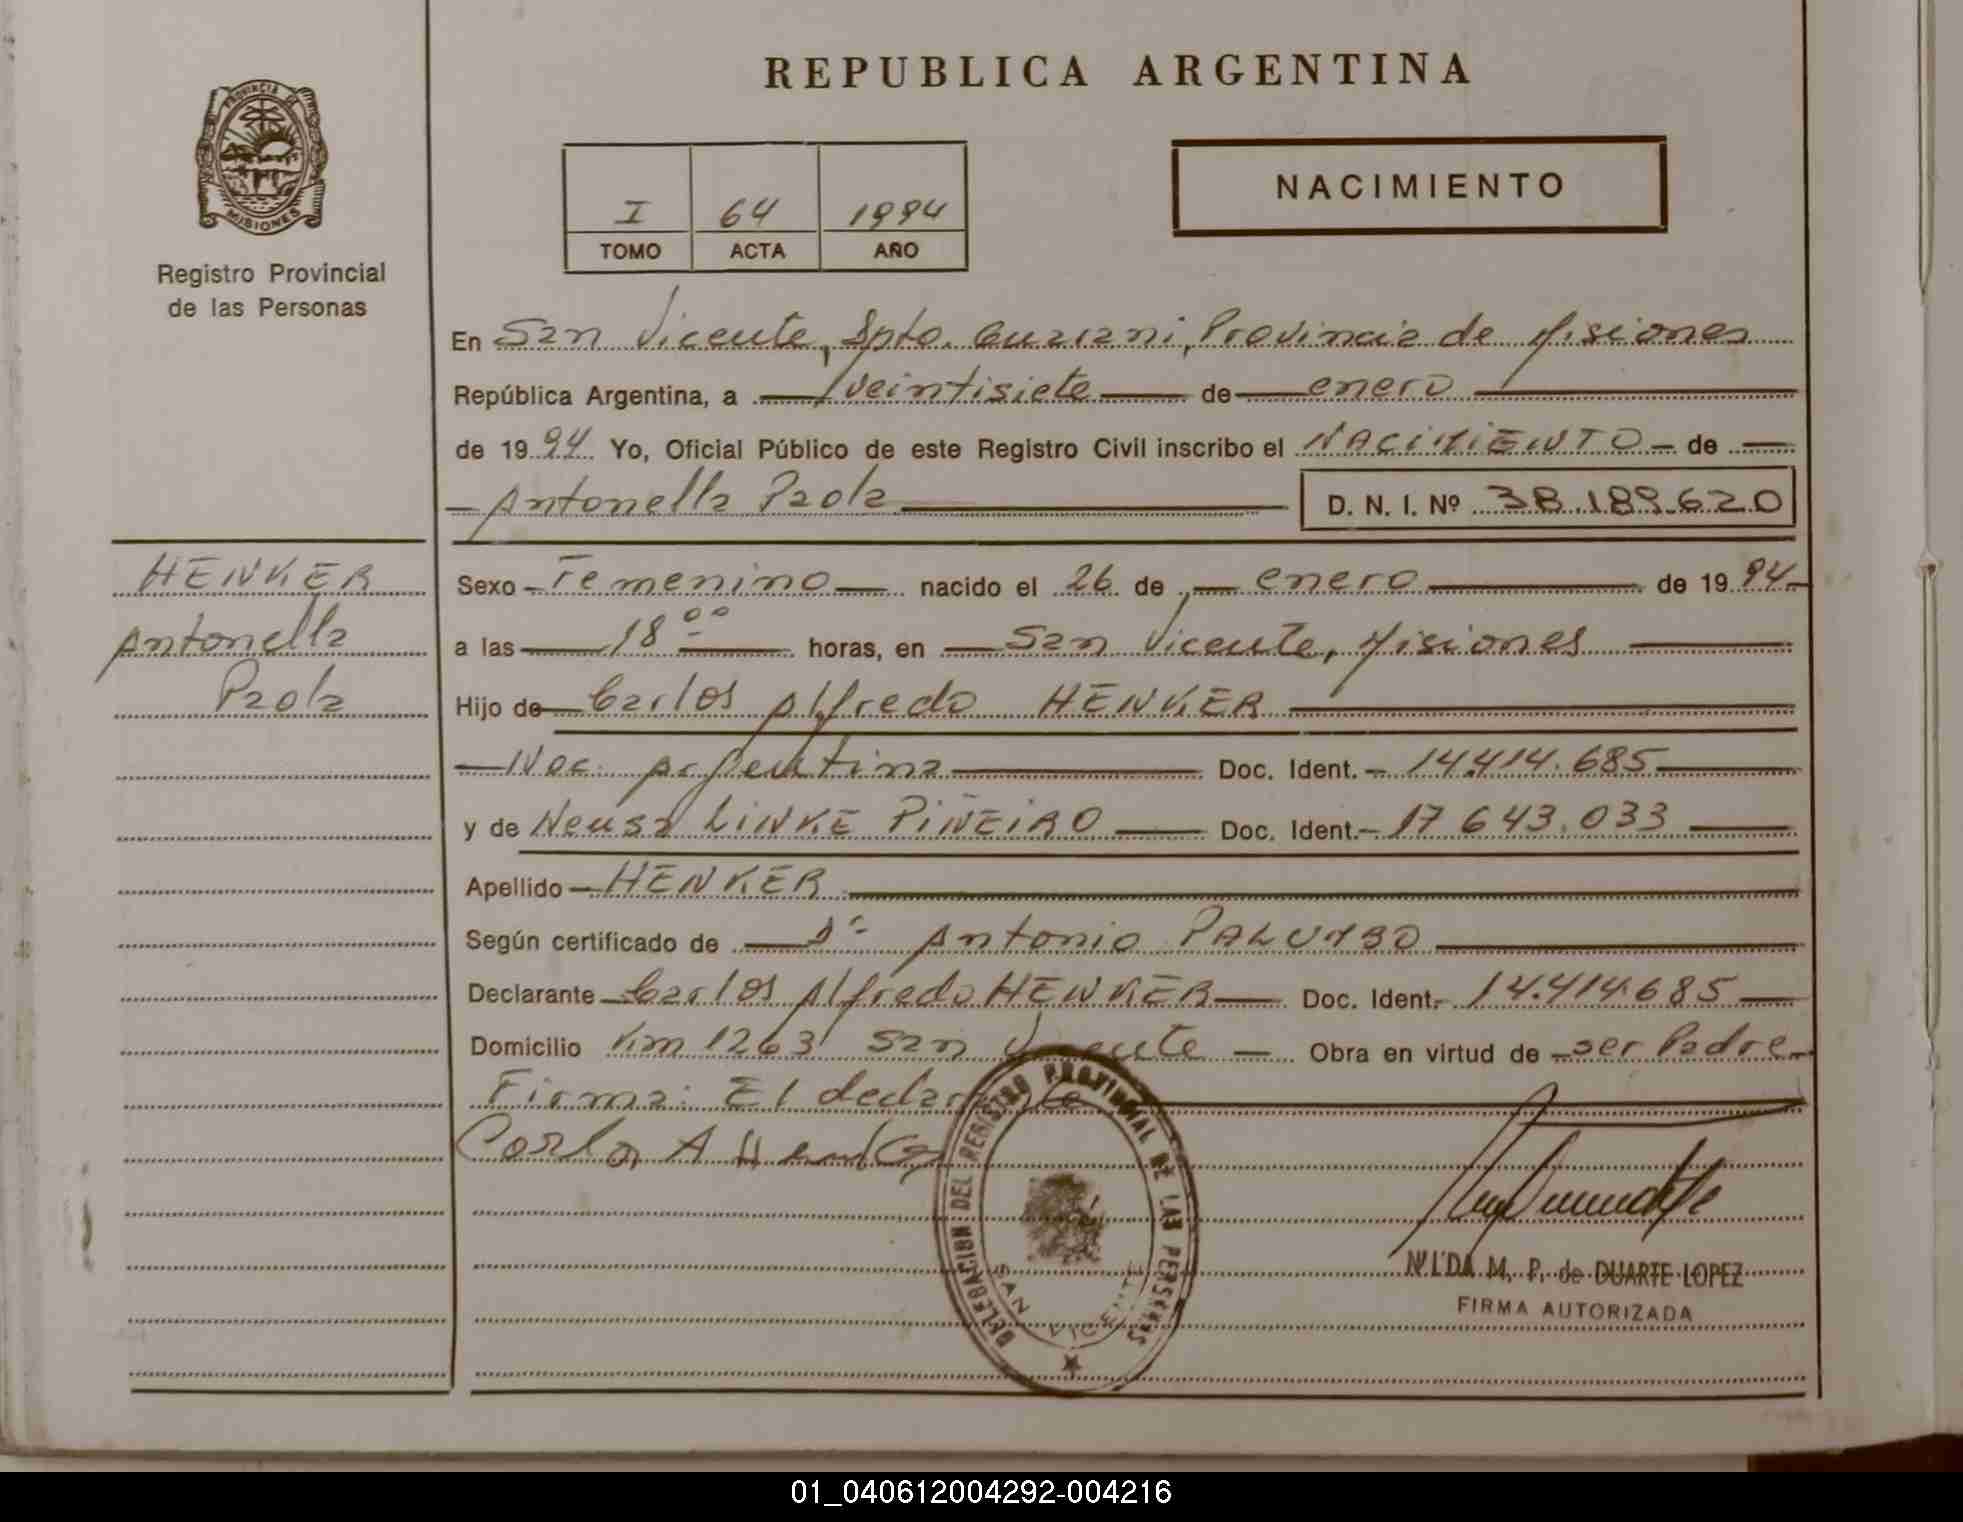 REPUBLICA ARGENTINA
PROVINCIA DE
MISIONES
Registro Provincial
de las Personas
I 64 1994
TOMO ACTA AÑO
NACIMIENTO
En San Vicente, Dpto. Guarani, Provincia de Misiones
República Argentina, a veintisiete de enero
de 1994 Yo, Oficial Público de este Registro Civil inscribo el NACIMIENTO de
Antonella Paola D. N. I. Nº 38.189.620
HENKER
Antonella
Paola
Sexo Femenino nacido el 26 de enero de 1994
a las 18 ºº horas, en San Vicente, Misiones
Hijo de Carlos Alfredo HENKER
Nac. Argentina Doc. Ident. 14.414.685
y de Neusa LINKE PIÑEIRO Doc. Ident. 17 643.033
Apellido HENKER
Según certificado de Dr Antonio PALUMBO
Declarante Carlos Alfredo HENKER Doc. Ident. 14.414.685
Domicilio Km 1263 San Vicente Obra en virtud de ser Padre
Firma: El declarante
Carlos A Henker
DELEGACION DEL REGISTRO PROVINCIAL DE LAS PERSONAS
SAN VICENTE
NILDA M. P. de DUARTE LOPEZ
FIRMA AUTORIZADA
01_040612004292-004216